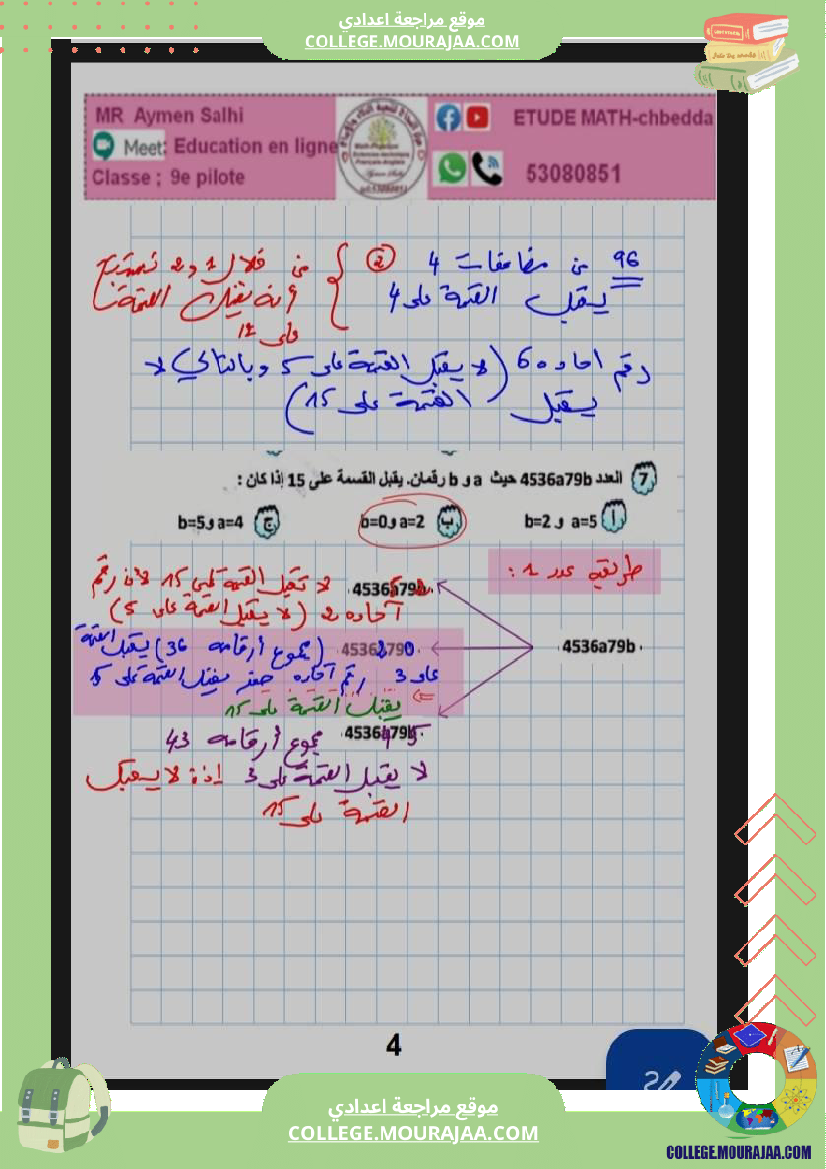 موقع مراجعة اعدادي
COLLEGE.MOURAJAA.COM
MR Aymen Salhi
ETUDE MATH-chbedda
Meet: Education en ligne
Classe ; 9e pilote
53080851
96 من مضاعفات 4
يقبل القسمة على 4
② من خلال 1 و 2 نستنتج
أنه يقبل القسمة
على 12
رقم احاده 6 (لا يقبل القسمة على 5 وبالتالي لا
يقبل القسمة على 15)
7 العدد 4536a79b حيث a و b رقمان. يقبل القسمة على 15 إذا كان :
أ a=5 و b=2
ب a=2 و b=0
ج a=4 و b=5
طريقة عدد 1 :
4536a79b
4536a79b لا تقبل القسمة على 15 لأن رقم
آحاده 2 (لا يقبل القسمة على 5)
45362790 (مجموع أرقامه 36) يقبل القسمة
على 3 رقم آحاده صفر يقبل القسمة على 5
⇐ يقبل القسمة على 15
4536a79b مجموع أرقامه 43
لا يقبل القسمة على 3 إذن لا يقبل
القسمة على 15
4
موقع مراجعة اعدادي
COLLEGE.MOURAJAA.COM
COLLEGE.MOURAJAA.COM